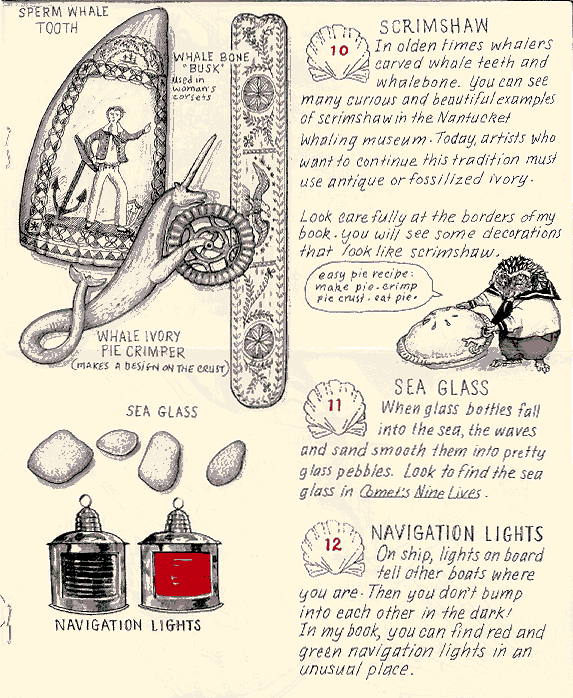 SPERM WHALE
TOOTH
WHALE BONE
"BUSK"
used in
woman's
corsets
WHALE IVORY
PIE CRIMPER
(MAKES A DESIGN ON THE CRUST)
SEA GLASS
NAVIGATION LIGHTS
10
SCRIMSHAW
In olden times whalers
carved whale teeth and
whalebone. You can see
many curious and beautiful examples
of scrimshaw in the Nantucket
Whaling museum. Today, artists who
want to continue this tradition must
use antique or fossilized ivory.
Look carefully at the borders of my
book. you will see some decorations
that look like scrimshaw.
easy pie recipe:
make pie. crimp
pie crust. eat pie.
11
SEA GLASS
When glass bottles fall
into the sea, the waves
and sand smooth them into pretty
glass pebbles. Look to find the sea
glass in Comet's Nine Lives.
12
NAVIGATION LIGHTS
On ship, lights on board
tell other boats where
you are. Then you don't bump
into each other in the dark!
In my book, you can find red and
green navigation lights in an
unusual place.